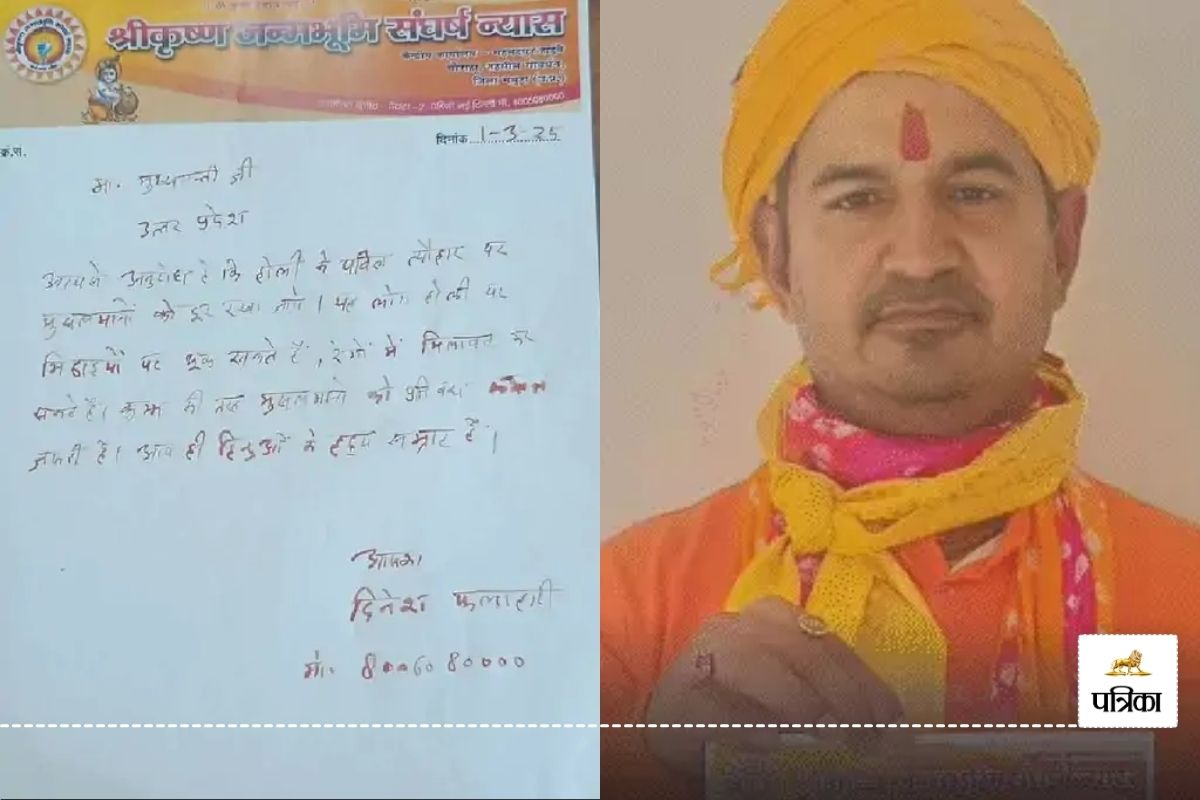 श्रीकृष्ण जन्मभूमि संघर्ष न्यास
केन्द्रीय कार्यालय -
जिला मथुरा (उ.प्र.)
क्र.स.
दिनांक 1-3-25
मा. मुख्यमन्त्री जी
उत्तर प्रदेश
आपसे अनुरोध है कि होली के पवित्र त्यौहार पर
मुसलमानों को दूर रखा जाये। यह लोग होली पर
मिठाइयों पर थूक सकते हैं, रंगों में मिलावट कर
सकते है। कुम्भ की तरह मुसलमानो को प्रतिबंध
जरूरी है। आप ही हिन्दुओं के हृदय सम्राट हैं।
आपका
दिनेश फलाहारी
मो. 8006080000
पत्रिका